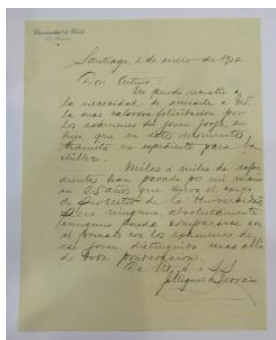 Universidad de Chile
Santiago, 2 de enero de 1912
Don Arturo:
No puedo resistir a
la necesidad de enviarle a Ud.
la mas calorosa felicitacion por
los exámenes del joven Jorje, su
hijo, que en estos momentos
tramita su espediente para ba
chiller.
Miles i miles de espe
dientes han pasado por mi mano
en 25 años que sirvo el cargo
de de la Universidad,
pero ninguno, absolutamente
ninguno puede compararse con
el formado con los exámenes de
ese joven, distinguido mas allá
de toda ponderacion.
De Ud. A. i S. S.